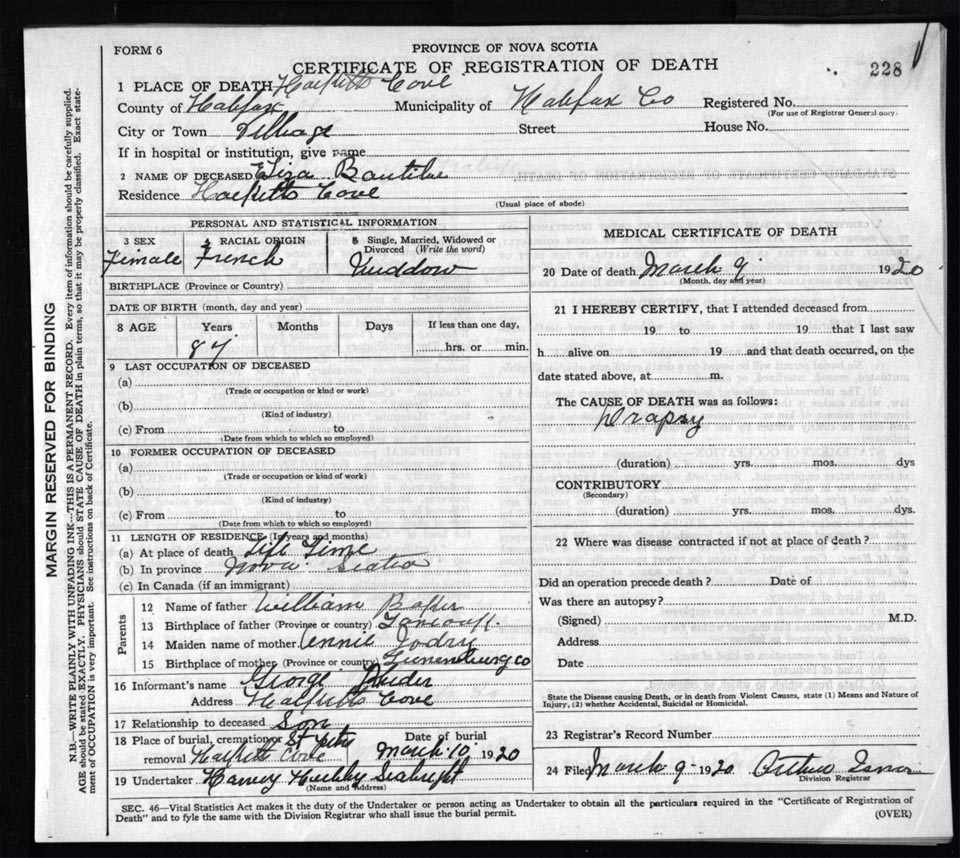 FORM 6
PROVINCE OF NOVA SCOTIA
CERTIFICATE OF REGISTRATION OF DEATH
228
1 PLACE OF DEATH Hacketts Cove
County of Halifax Municipality of Halifax Co Registered No.
(For use of Registrar General only.
City or Town Village Street House No.
If in hospital or institution, give name
2 NAME OF DECEASED Eliza
Residence Hacketts Cove
(Usual place of abode)
PERSONAL AND STATISTICAL INFORMATION
3 SEX Female
4 RACIAL ORIGIN French
5 Single, Married, Widowed or Divorced (Write the word) Widdow
BIRTHPLACE (Province or Country)
DATE OF BIRTH (month, day and year)
8 AGE Years Months Days If less than one day,
87 hrs. or min.
9 LAST OCCUPATION OF DECEASED
(a)
(Trade or occupation or kind or work)
(b)
(Kind of industry)
(c) From to
(Date from which to which so employed)
10 FORMER OCCUPATION OF DECEASED
(a)
(Trade or occupation or kind of work)
(b)
(Kind of industry)
(c) From to
(Date from which to which so employed)
11 LENGTH OF RESIDENCE (In years and months)
(a) At place of death Life Time
(b) In province Nova Scotia
(c) In Canada (if an immigrant)
Parents
12 Name of father William
13 Birthplace of father (Province or country)
14 Maiden name of mother Annie Jodry
15 Birthplace of mother (Province or country) Lunenburg co
16 Informant's name George
Address Hacketts Cove
17 Relationship to deceased Son
18 Place of burial, cremation or removal St Peters Hacketts Cove
Date of burial March 10 1920
19 Undertaker Harvey Hubley Seabright
(Name and Address)
MEDICAL CERTIFICATE OF DEATH
20 Date of death March 9 1920
(Month, day and year)
21 I HEREBY CERTIFY, that I attended deceased from
19 to 19 that I last saw
h alive on 19 and that death occurred, on the
date stated above, at m.
The CAUSE OF DEATH was as follows:
Drapsy
(duration) yrs. mos. dys
CONTRIBUTORY
(Secondary)
(duration) yrs. mos. dys.
22 Where was disease contracted if not at place of death?
Did an operation precede death? Date of
Was there an autopsy?
(Signed) M.D.
Address
Date
State the Disease causing Death, or in death from Violent Causes, state (1) Means and Nature of
Injury, (2) whether Accidental, Suicidal or Homicidal.
23 Registrar's Record Number
24 Filed March 9 1920
Division Registrar
SEC. 46—Vital Statistics Act makes it the duty of the Undertaker or person acting as Undertaker to obtain all the particulars required in the "Certificate of Registration of
Death" and to fyle the same with the Division Registrar who shall issue the burial permit.
(OVER)
MARGIN RESERVED FOR BINDING
N.B.—WRITE PLAINLY WITH UNFADING INK—THIS IS A PERMANENT RECORD. Every item of information should be carefully supplied.
AGE should be stated EXACTLY. PHYSICIANS should STATE CAUSE OF DEATH in plain terms, so that it may be properly classified. Exact state-
ment of OCCUPATION is very important. See instructions on back of Certificate.